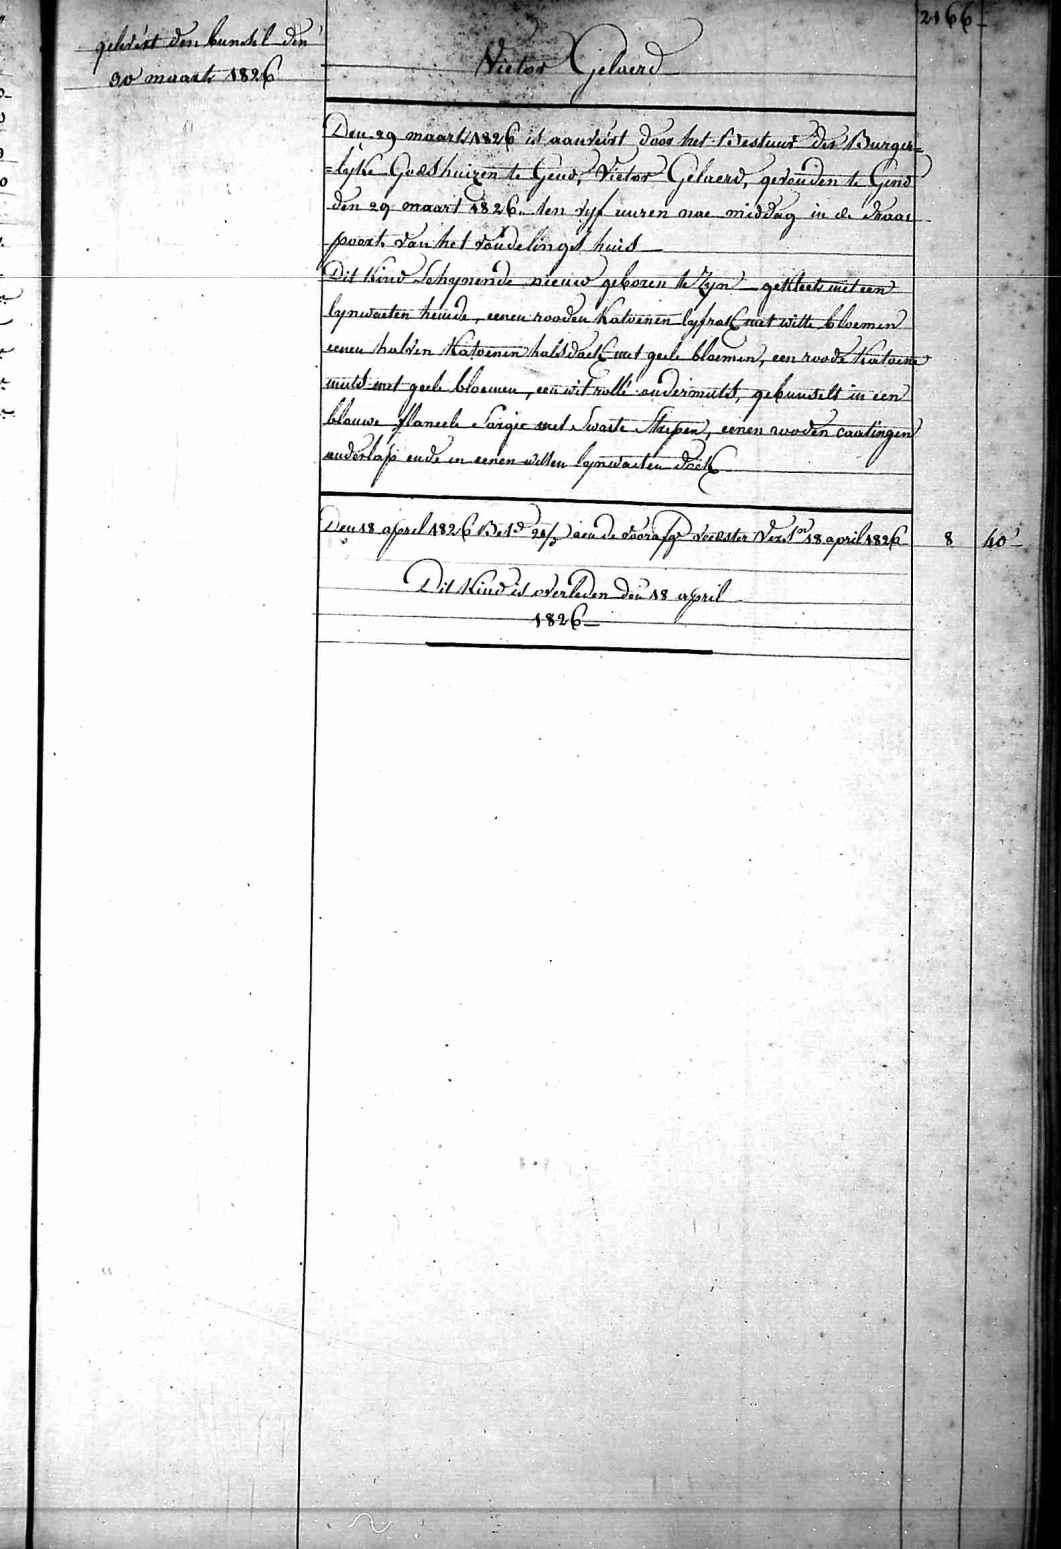 2166
gelevert den bunsel den
30 maart 1826
Victor Gelaerd
Den 29 maart 1826 is aanveirt door het Bestuur der Burger=
=lyke Godshuizen te Gend, Victor Gelaerd, gevonden te Gend
den 29 maart 1826 ten vyf uuren nae middag in de Draai
poort van het vondelings huis
Dit Kind Schynende nieuw geboren te Zyn gekleet met een
lynwaeten hemde, eenen rooden Katoenen lyfrok met witte bloemen
eenen halven Katoenen halsdoek met geele bloemen, een roode Katoene
muts met geele bloemen, een wit ondermuts, gebunselt in een
blauwe flaneele Sargie met Swarte Strepen, eenen rooden
onderlap ende in eenen witten lynwaeten doek
Den 18 april 1826 aen de Voedster 18 april 1826 8 40
Dit Kind is overleden den 18 april
1826